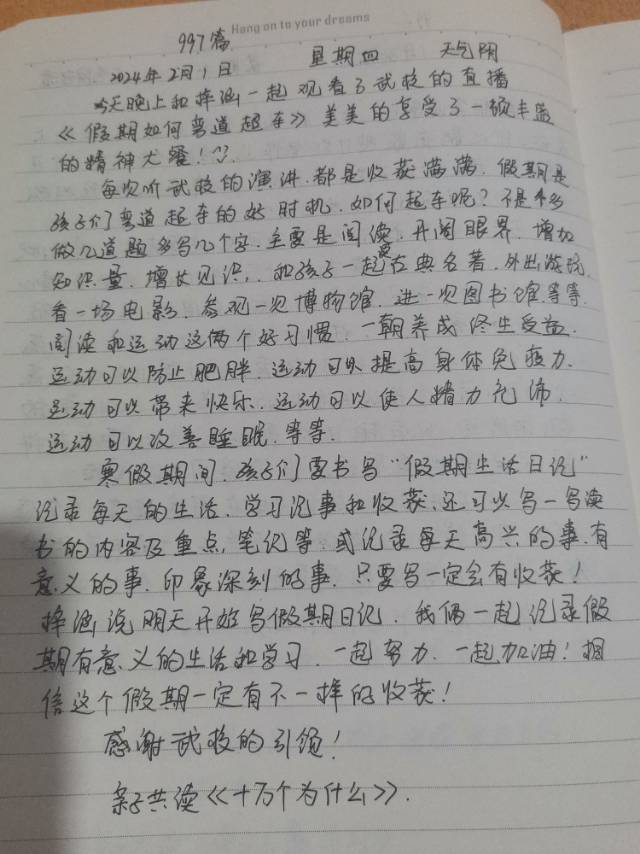 Hang on to your dreams
997篇
2024年2月1日 星期四 天气阴
今天晚上和梓涵一起观看了武校的直播
《假期如何弯道超车》美美的享受了一顿丰盛
的精神大餐!
每次听武校的演讲.都是收获满满.假期是
孩子们弯道超车的好时机.如何超车呢?不是多
做几道题多写几个字.主要是阅读.开阔眼界.增加
知识量.增长见识,.和孩子一起读古典名著.外出游玩.
看一场电影.参观一次博物馆.进一次图书馆.等等.
阅读和运动这两个好习惯.一朝养成终生受益.
运动可以防止肥胖.运动可以提高身体免疫力.
运动可以带来快乐.运动可以使人精力充沛.
运动可以改善睡眠.等等.
寒假期间.孩子们要书写“假期生活日记”
记录每天的生活.学习记事和收获.还可以写一写读
书的内容及重点,笔记等.或记录每天高兴的事.有
意义的事.印象深刻的事.只要写一定会有收获!
梓涵说明天开始写假期日记.我俩一起记录假
期有意义的生活和学习.一起努力.一起加油!相
信这个假期一定有不一样的收获!
感谢武校的引领!
亲子共读《十万个为什么》.